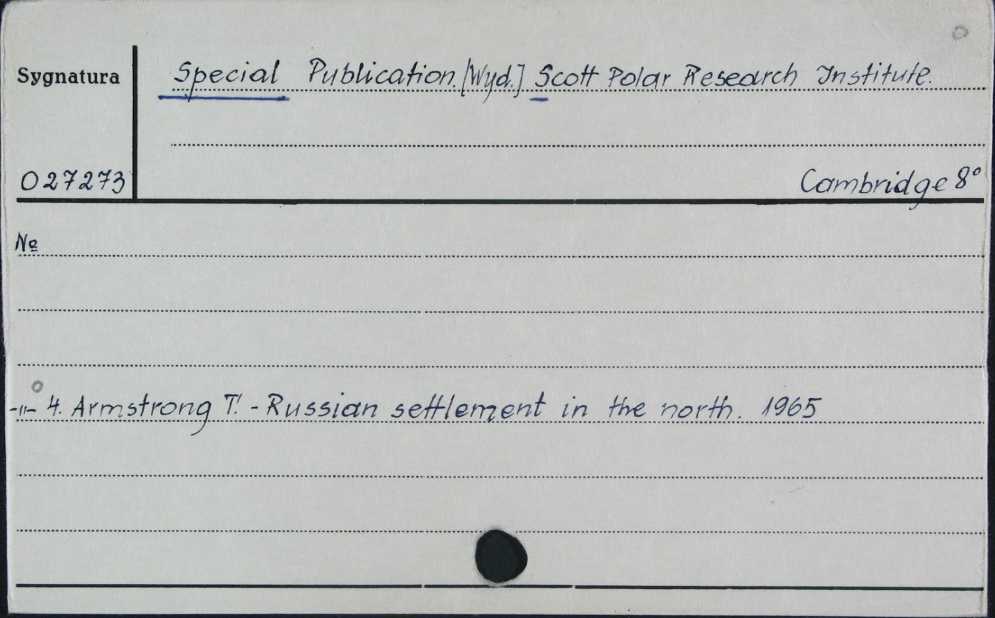 Sygnatura Special Publication. [Wyd.] Scott Polar Research Institute.
027273 Cambridge 8°
№
-"- 4. Armstrong T. - Russian settlement in the north. 1965